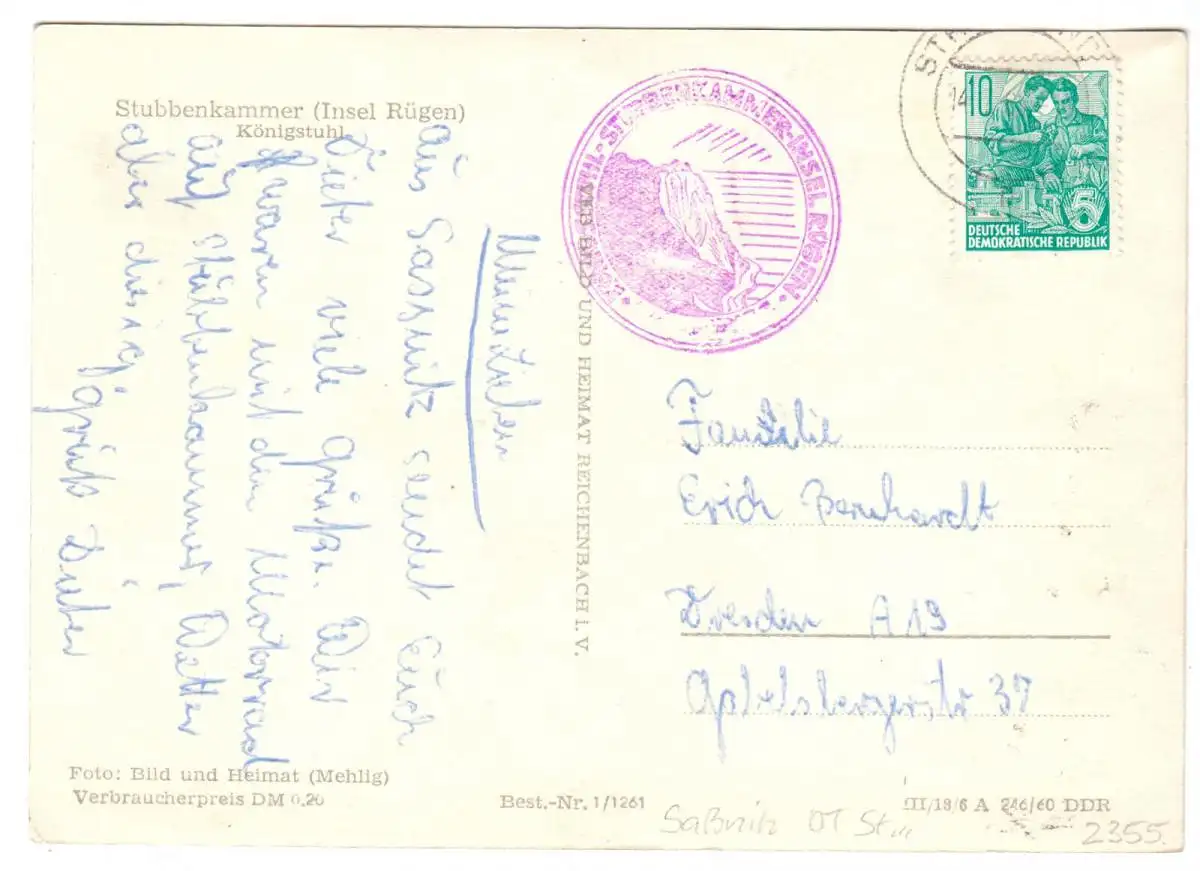 Stubbenkammer (Insel Rügen)
Königstuhl
Meine Lieben
aus Sassnitz sendet Euch
Dieter viele Grüße. Wir
waren mit dem Motorrad
auf Stubbenkammer, Wetter
aber diesig, grüßt Dieter
Foto: Bild und Heimat (Mehlig)
Verbraucherpreis DM 0,20
VEB BILD UND HEIMAT REICHENBACH i. V.
Best.-Nr. 1/1261
STUBBENKAMMER-INSEL RÜGEN
10
5
DEUTSCHE
DEMOKRATISCHE REPUBLIK
Familie
Erich Bernhardt
Dresden A 19
III/18/6 A 246/60 DDR
Saßnitz OT
2355.